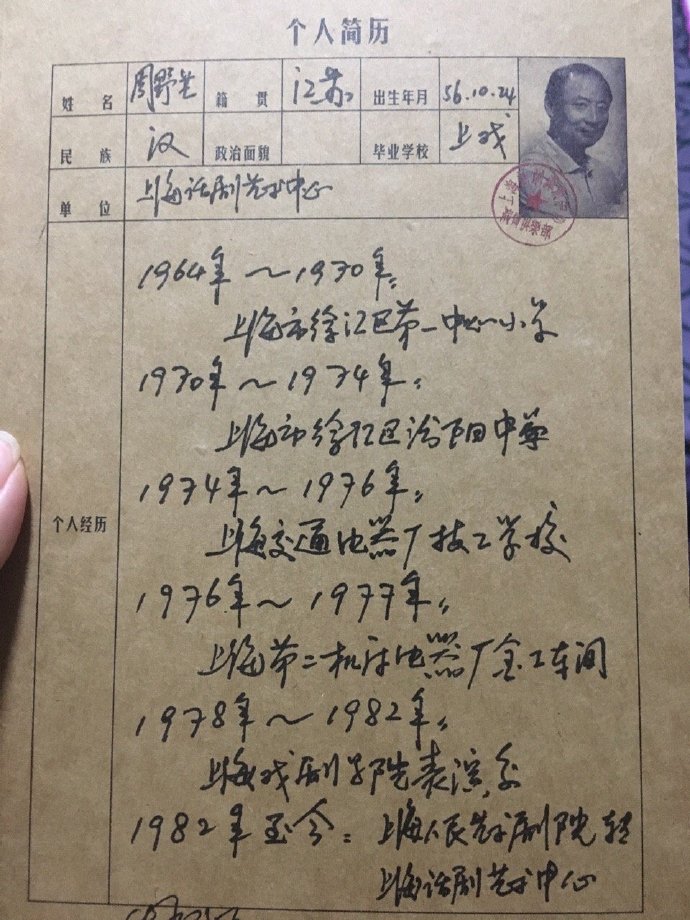 个人简历
姓名 周野芒 籍贯 江苏 出生年月 56.10.24
民族 汉 政治面貌 毕业学校 上戏
单位 上海话剧艺术中心
个人经历
1964年～1970年:
上海市徐汇区第一中心小学
1970年～1974年:
上海市徐汇区汾阳中学
1974年～1976年:
上海交通电器厂技工学校
1976年～1977年:
上海第二机床电器厂金工车间
1978年～1982年:
上海戏剧学院表演系
1982年至今: 上海人民艺术剧院转
上海话剧艺术中心